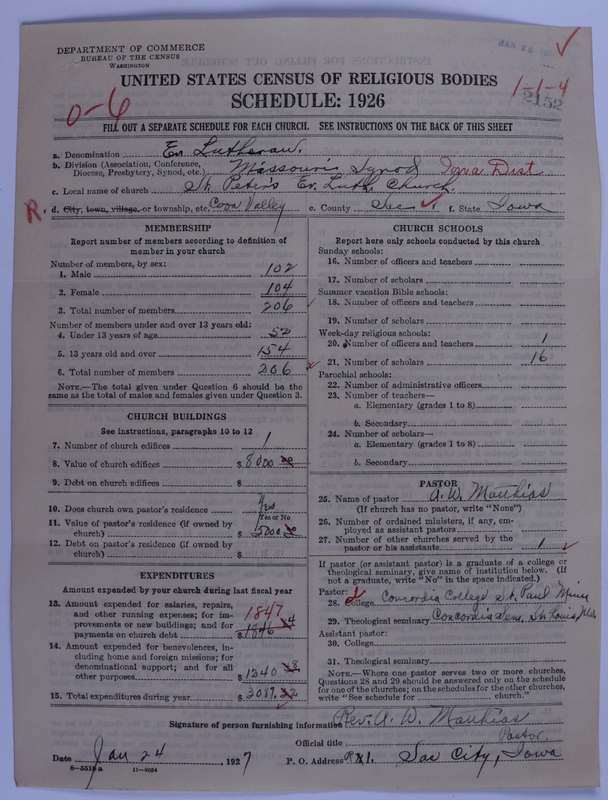 DEPARTMENT OF COMMERCE
BUREAU OF THE CENSUS
WASHINGTON
JAN 26
UNITED STATES CENSUS OF RELIGIOUS BODIES
SCHEDULE: 1926
0-6
1-1-4
2152
FILL OUT A SEPARATE SCHEDULE FOR EACH CHURCH. SEE INSTRUCTIONS ON THE BACK OF THIS SHEET
a. Denomination Ev. Lutheran.
b. Division (Association, Conference, Diocese, Presbytery, Synod, etc.) Missouri Synod Iowa Dist
c. Local name of church St. Peter's Ev. Luth. Church.
R. d. City, town, village, or township, etc. Coon Valley e. County Sac f. State Iowa
MEMBERSHIP
Report number of members according to definition of member in your church
Number of members, by sex:
1. Male 102
2. Female 104
3. Total number of members 206
Number of members under and over 13 years old:
4. Under 13 years of age 52
5. 13 years old and over 154
6. Total number of members 206
NOTE.—The total given under Question 6 should be the same as the total of males and females given under Question 3.
CHURCH BUILDINGS
See instructions, paragraphs 10 to 12
7. Number of church edifices 1
8. Value of church edifices $ 8000
9. Debt on church edifices $
10. Does church own pastor's residence Yes
Yes or No
11. Value of pastor's residence (if owned by church) $ 5000
12. Debt on pastor's residence (if owned by church) $
EXPENDITURES
Amount expended by your church during last fiscal year
13. Amount expended for salaries, repairs, and other running expenses; for improvements or new buildings; and for payments on church debt 1847 $ 1846
14. Amount expended for benevolences, including home and foreign missions; for denominational support; and for all other purposes $ 1240
15. Total expenditures during year $ 3087.
CHURCH SCHOOLS
Report here only schools conducted by this church
Sunday schools:
16. Number of officers and teachers
17. Number of scholars
Summer vacation Bible schools:
18. Number of officers and teachers
19. Number of scholars
Week-day religious schools:
20. Number of officers and teachers 1
21. Number of scholars 16
Parochial schools:
22. Number of administrative officers
23. Number of teachers—
a. Elementary (grades 1 to 8)
b. Secondary
24. Number of scholars—
a. Elementary (grades 1 to 8)
b. Secondary
PASTOR
25. Name of pastor A. W. Matthias
(If church has no pastor, write "None")
26. Number of ordained ministers, if any, employed as assistant pastors
27. Number of other churches served by the pastor or his assistants 1
If pastor (or assistant pastor) is a graduate of a college or theological seminary, give name of institution below. (If not a graduate, write "No" in the space indicated.)
Pastor:
28. College Concordia College St. Paul Minn
29. Theological seminary Concordia Sem. St. Louis, Mo.
Assistant pastor:
30. College
31. Theological seminary
NOTE.—Where one pastor serves two or more churches, Questions 28 and 29 should be answered only on the schedule for one of the churches; on the schedules for the other churches, write "See schedule for church."
Signature of person furnishing information Rev. A. W. Matthias
Official title Pastor.
Date Jan 24, 1927 P. O. Address R#1. Sac City, Iowa
11-9064